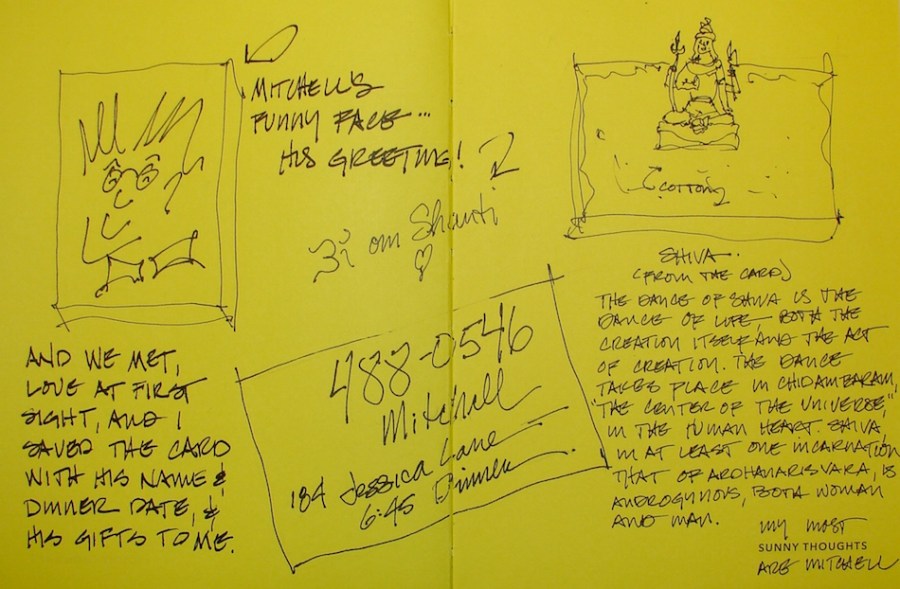 MITCHELL'S
FUNNY FACE...
HIS GREETING!
ॐ om Shanti
AND WE MET,
LOVE AT FIRST
SIGHT, AND I
SAVED THE CARD
WITH HIS NAME &
DINNER DATE, &
HIS GIFTS TO ME.
488-0546
Mitchell
184 Jessica Lane
6:45 Dinner
COTTON
SHIVA.
(FROM THE CARD)
THE DANCE OF SHIVA IS THE
DANCE OF LIFE, BOTH THE
CREATION ITSELF AND THE ACT
OF CREATION. THE DANCE
TAKES PLACE IN CHIDAMBARAM,
"THE CENTER OF THE UNIVERSE,"
IN THE HUMAN HEART. SHIVA,
IN AT LEAST ONE INCARNATION,
THAT OF ARDHANARISVARA, IS
ANDROGYNOUS, BOTH WOMAN
AND MAN.
MY MOST
SUNNY THOUGHTS
ARE MITCHELL